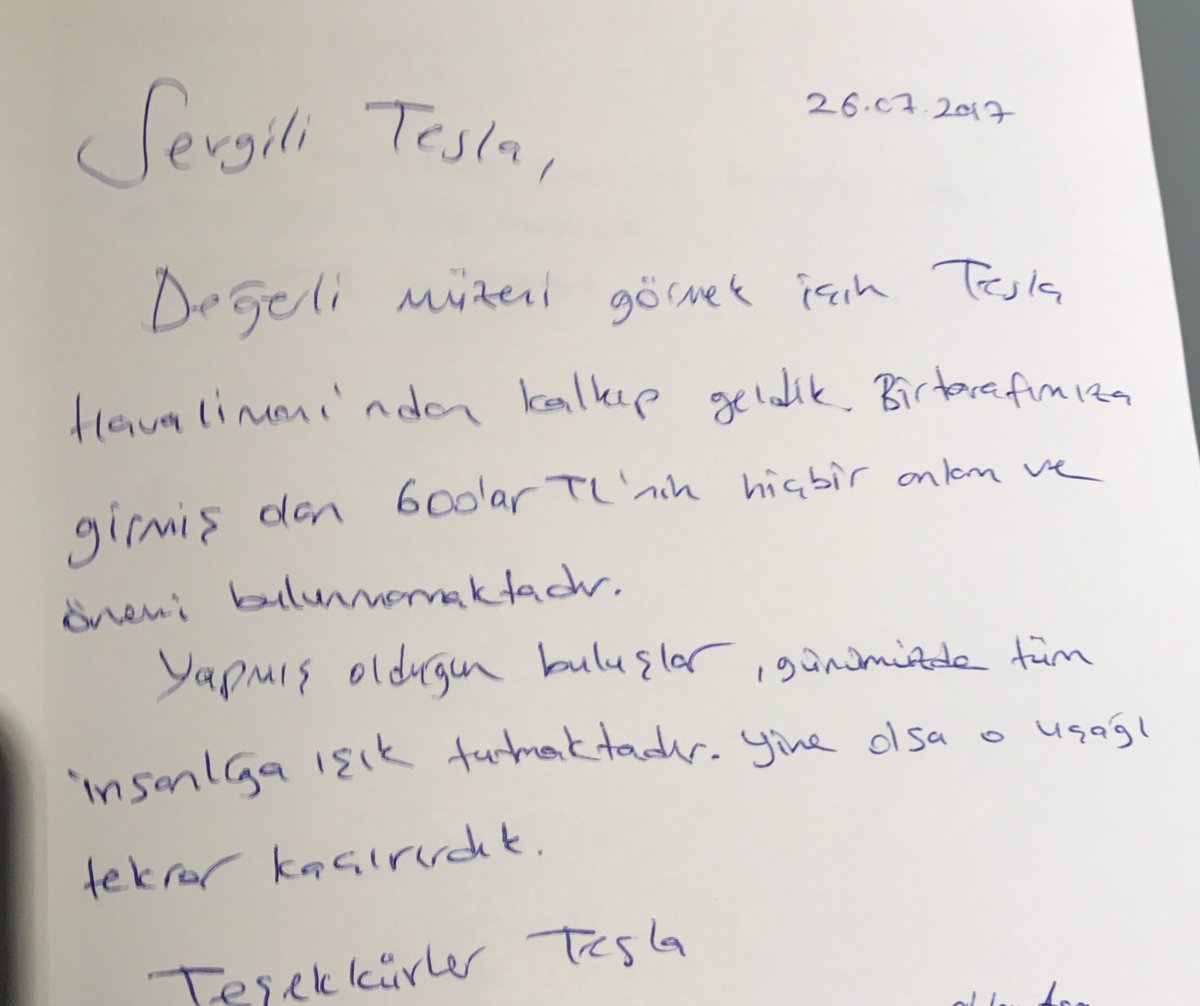 26.07.2017
Sevgili Tesla,
Değerli müzeni görmek için Tesla
Havalimanı'ndan kalkıp geldik. Bir tarafımıza
girmiş olan 600'lar TL'nin hiçbir anlam ve
önemi bulunmamaktadır.
Yapmış olduğun buluşlar, günümüzde tüm
insanlığa ışık tutmaktadır. Yine olsa o uçağı
tekrar kaçırırdık.
Teşekkürler Tesla